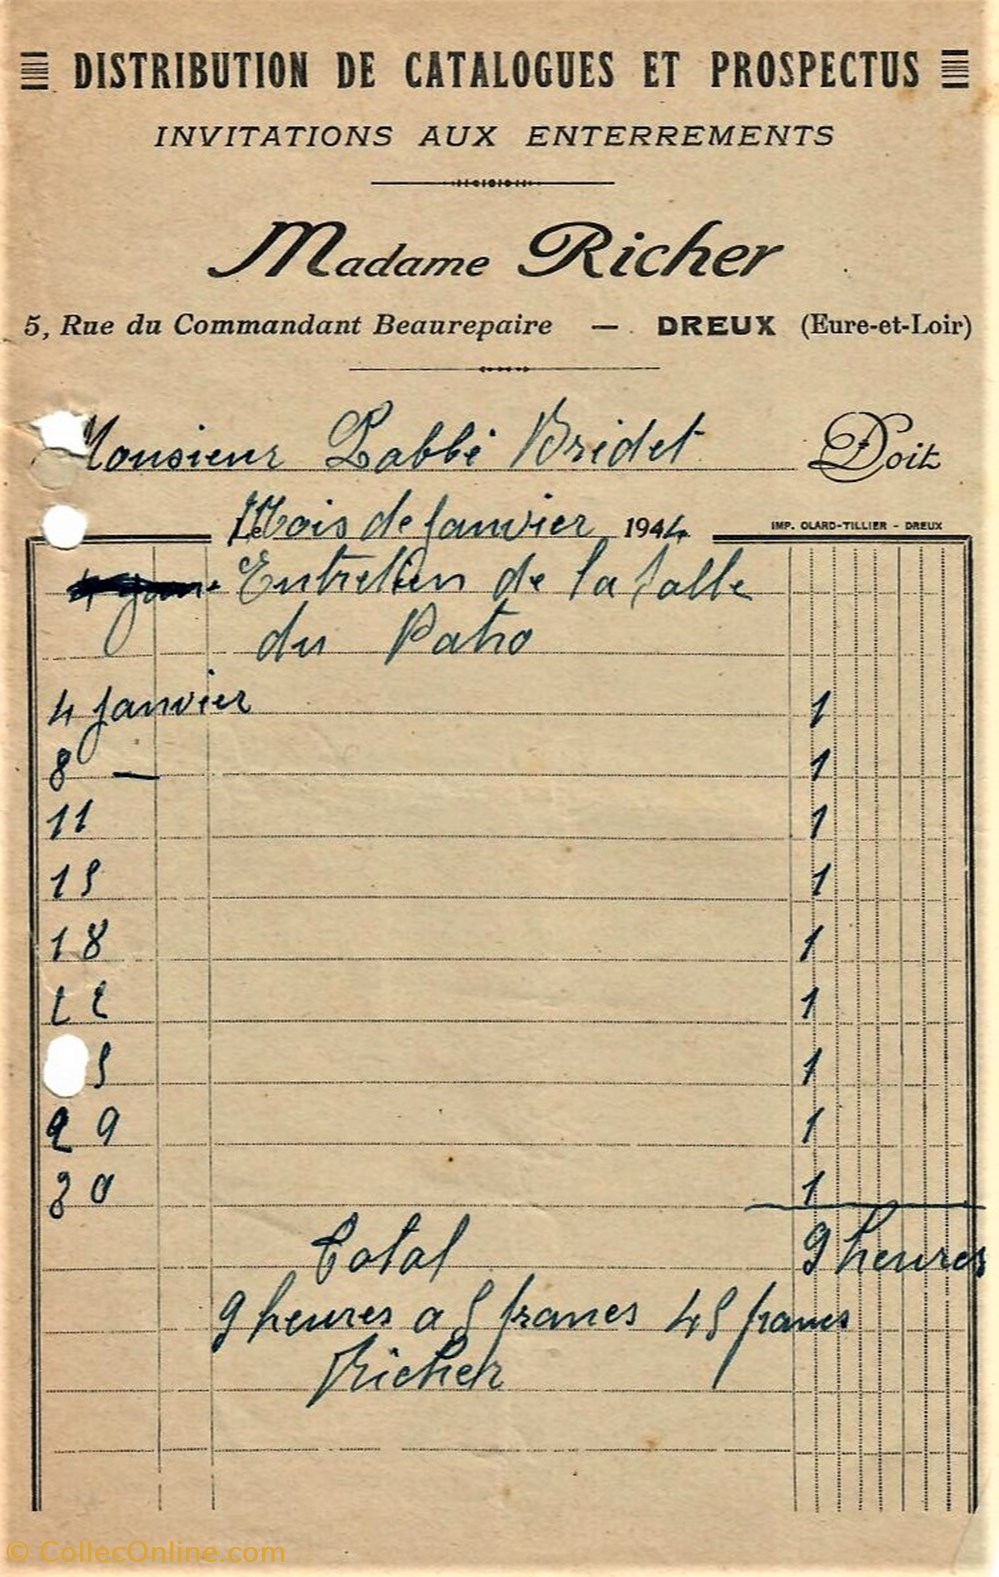 DISTRIBUTION DE CATALOGUES ET PROSPECTUS
INVITATIONS AUX ENTERREMENTS
Madame Richer
5, Rue du Commandant Beaurepaire — DREUX (Eure-et-Loir)
Monsieur Labbé Bridet Doit
Mois de Janvier 1944
IMP. OLARD-TILLIER - DREUX
Entretien de la salle
du Patro
4 Janvier 1
8 — 1
11 1
15 1
18 1
22 1
5 1
29 1
30 1
Total 9 heures
9 heures a 5 francs 45 francs
Richer
© CollecOnline.com